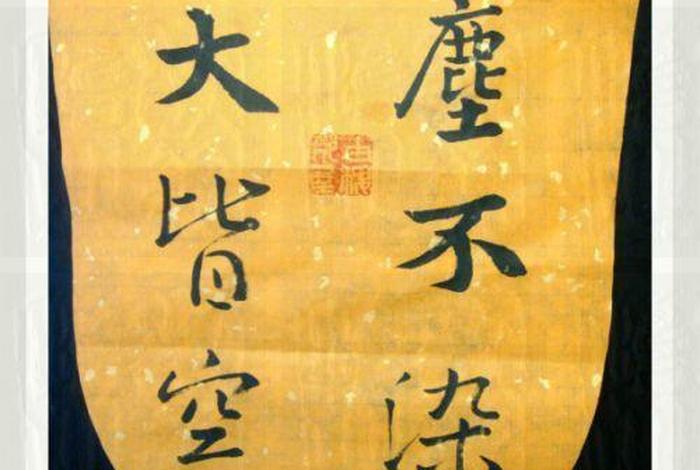 塵不染
大皆空